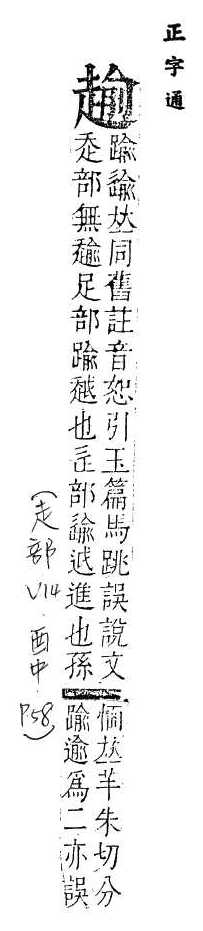 正字通
𧼯
踰逾𠀤同舊註音恕引玉篇馬跳誤說文
走部無𧼯足部踰越也辵部逾𨒋進也孫
愐𠀤羊朱切分
踰逾爲二亦誤
(走部 V14 酉中 P58)